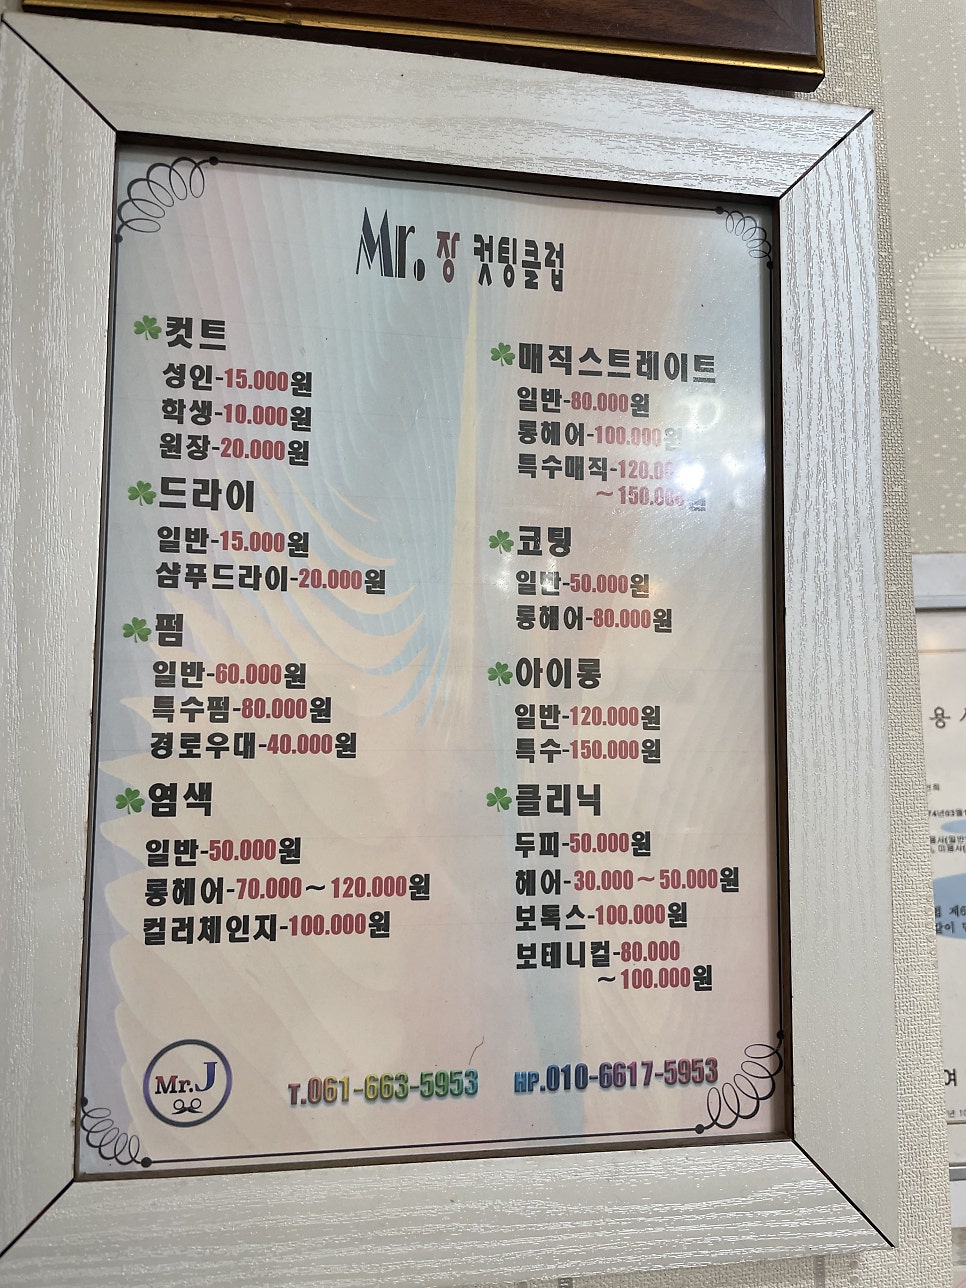 Mr. 장 컷팅클럽
컷트
성인-15.000원
학생-10.000원
원장-20.000원
드라이
일반-15.000원
샴푸드라이-20.000원
펌
일반-60.000원
특수펌-80.000원
경로우대-40.000원
염색
일반-50.000원
롱헤어-70.000~120.000원
컬러체인지-100.000원
매직스트레이트
일반-80.000원
롱헤어-100.000원
특수매직-120.00
~150.000원
코팅
일반-50.000원
롱헤어-80.000원
아이롱
일반-120.000원
특수-150.000원
클리닉
두피-50.000원
헤어-30.000~50.000원
보톡스-100.000원
보테니컬-80.000
~100.000원
Mr.J
T.061-663-5953
HP.010-6617-5953
용
여